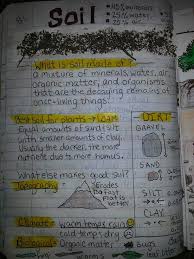 Soil
• 45% minerals
• 25% water
• 25% air
What is soil made of?
a mixture of minerals, water, air
organic matter, and organisms
that are the decaying remains of
once-living things!
Best soil for plants → LOAM
Equal amounts of sand & silt
with smaller amounts of clay.
Usually the darker, the more
nutrient due to more humus.
What else makes good soil?
Topography
Grades
fast
flat is
better
Climate - warm temps
cold temp: dry
Biological: Organic matter
DIRT
GRAVEL
SAND
SILT
CLAY
Bugs
leaf